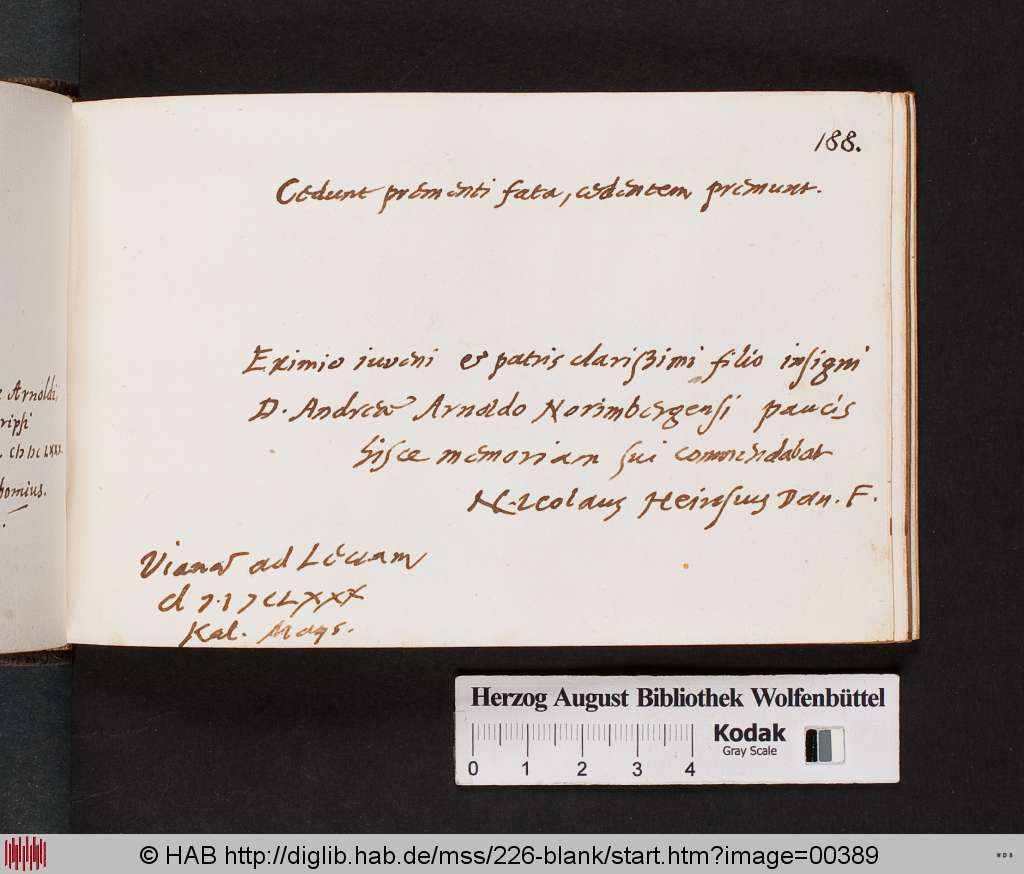 188.
Cedunt prementi fata, cedentem premunt.
Eximio iuveni et patris clarissimi filio insigni
D. Andreæ Arnoldo Norimbergensi paucis
hisce memoriam sui commendabat
Nicolaus Heinsius Dan. F.
Vianæ ad Leccam
cIↃ.IↃcLXXX
Kal. Mays.
Arnoldi,
ripsi
cIↃ IↃc LXXX
homius.
Herzog August Bibliothek Wolfenbüttel
Kodak
Gray Scale
0 1 2 3 4
© HAB http://diglib.hab.de/mss/226-blank/start.htm?image=00389
WDB